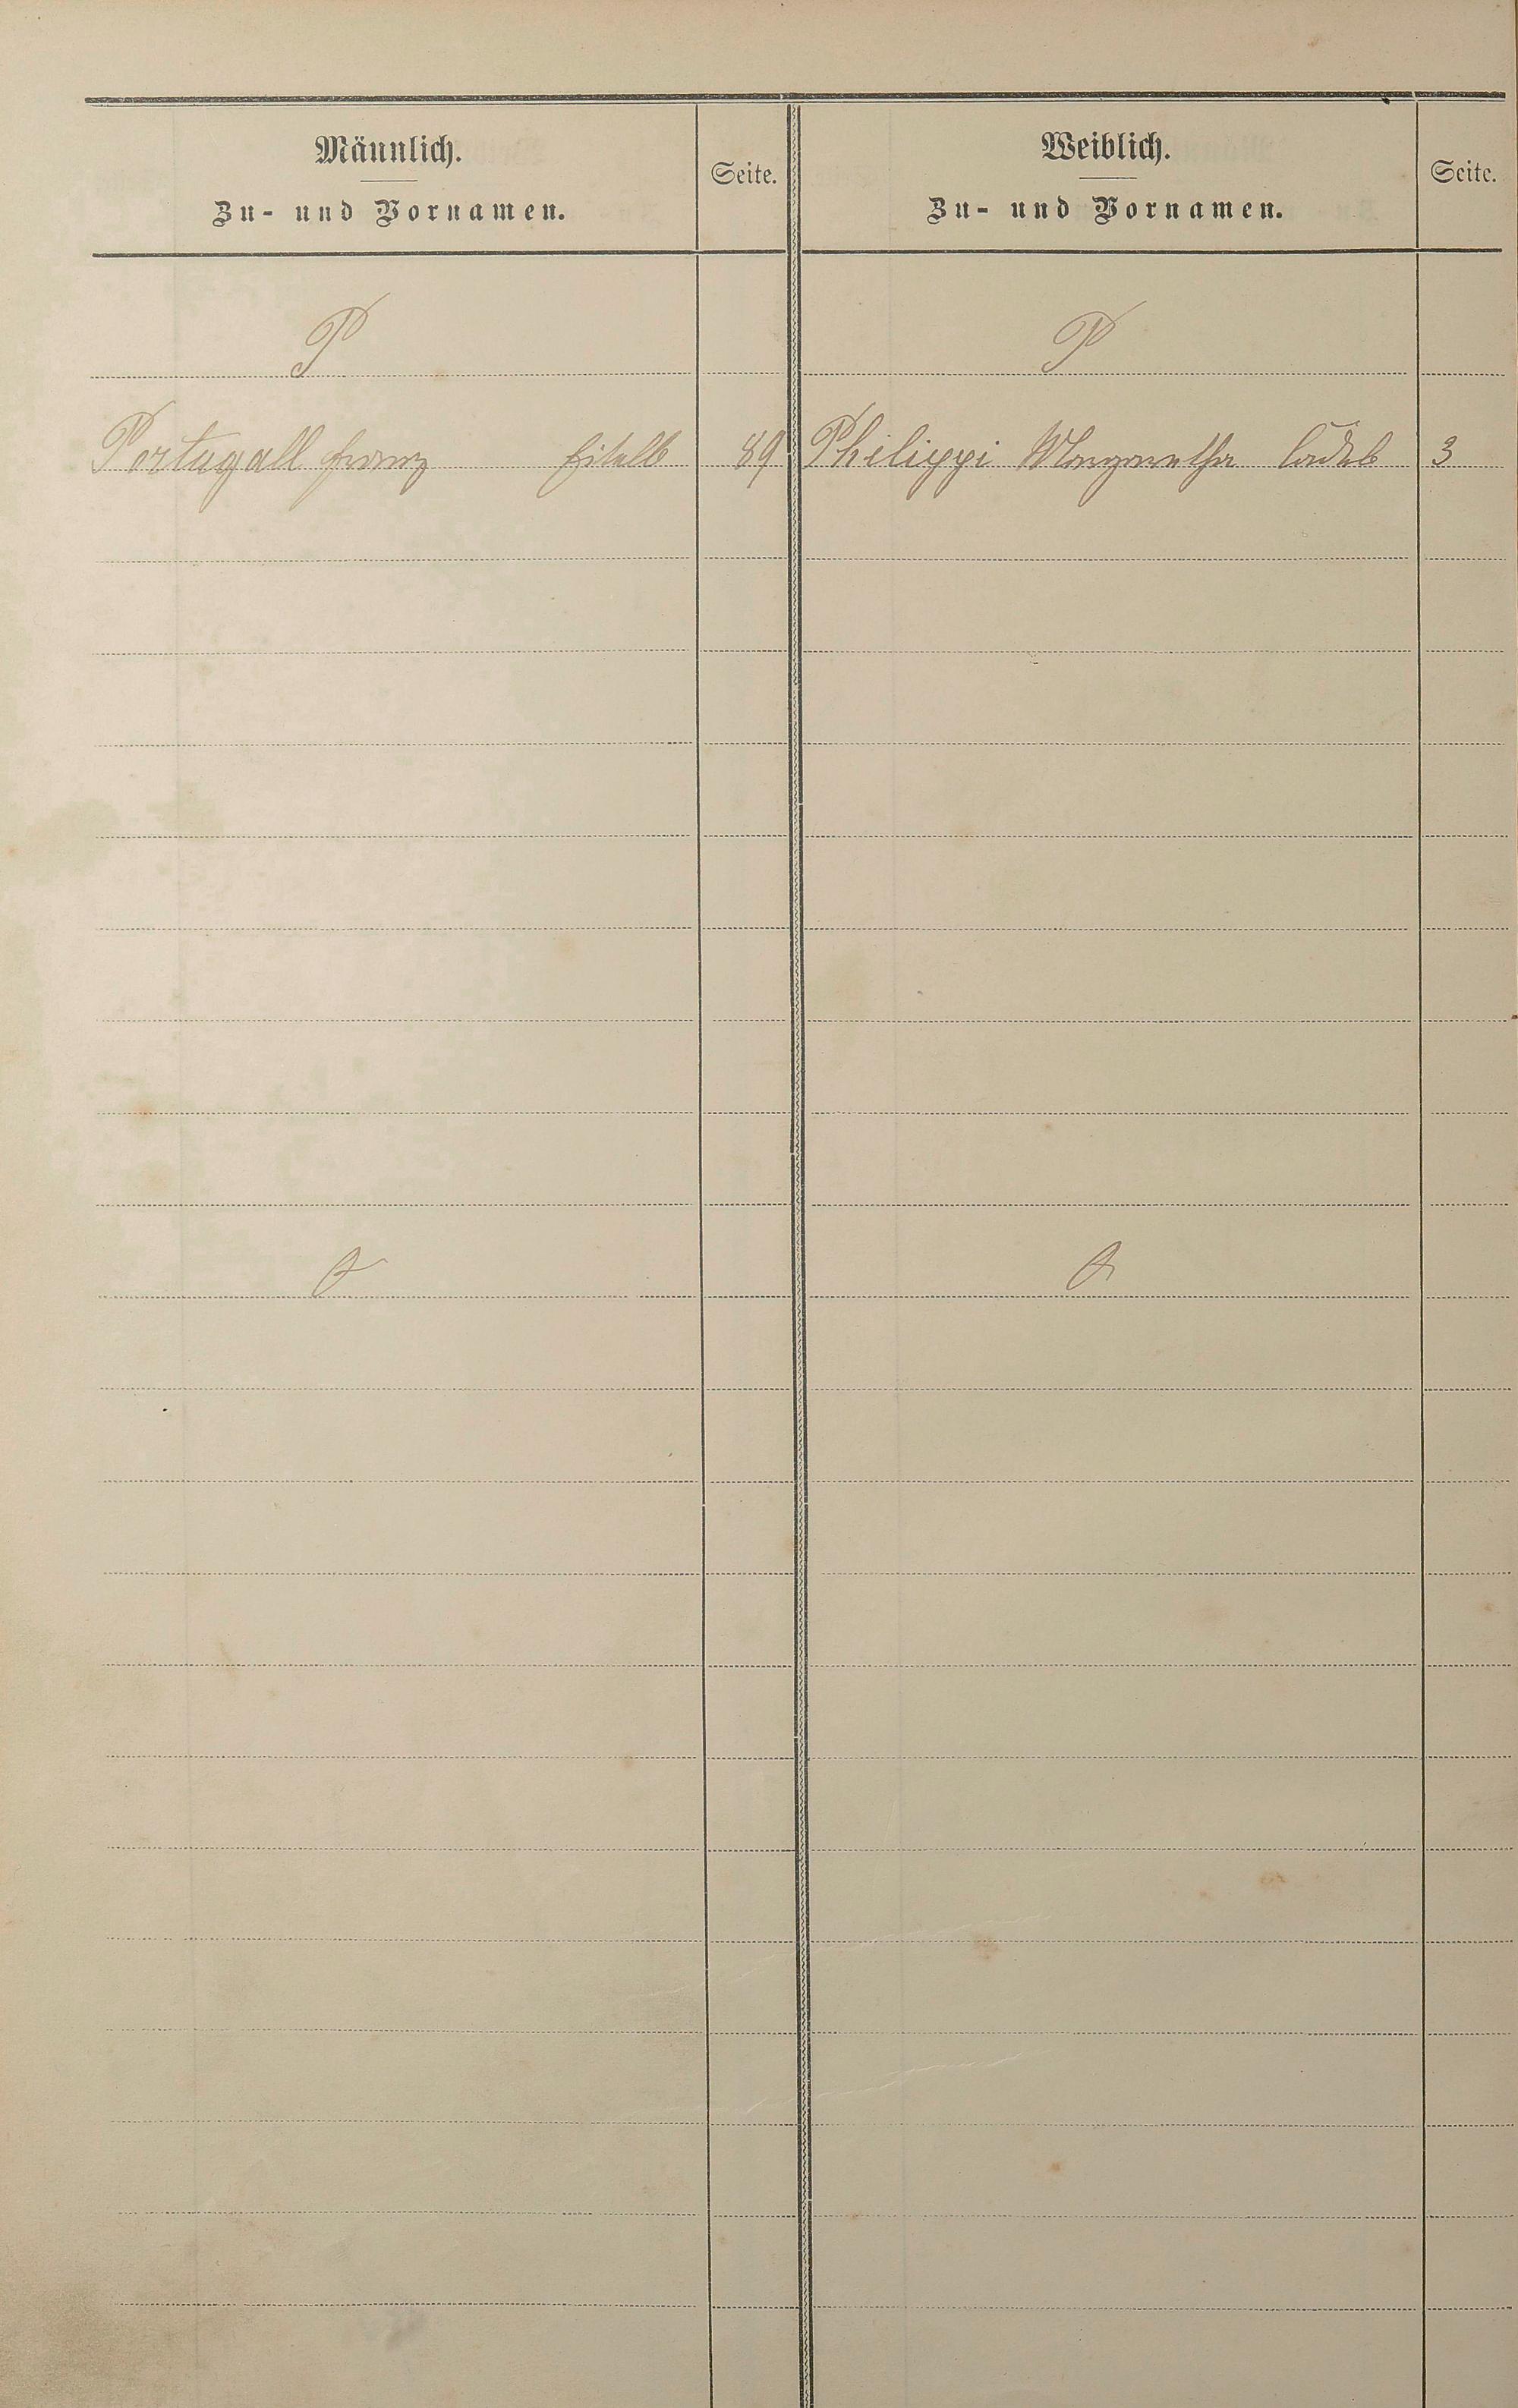 Männlich.
Zu- und Vornamen.
Seite.
Weiblich.
Zu- und Vornamen.
Seite.
P
P
Portugall Franz 89
Philippi Margaretha 3